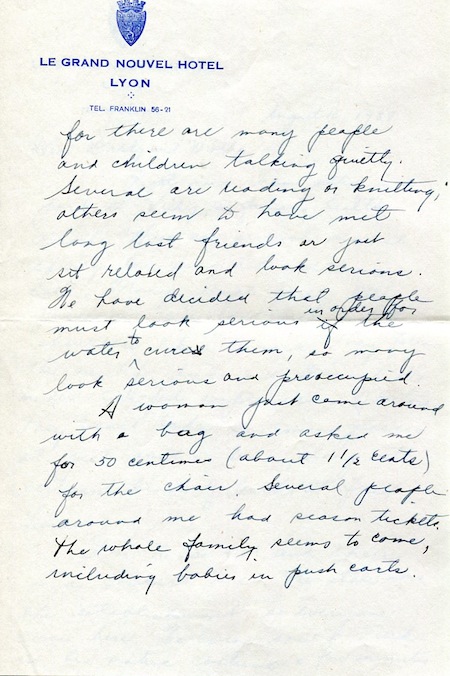 LE GRAND NOUVEL HOTEL
LYON
TEL. FRANKLIN 56-21
for there are many people
and children talking quietly.
Several are reading or knitting,
others seem to have met
long lost friends or just
sit relaxed and look serious.
We have decided that people
must look serious in order for the
water to cure them, so many
look serious and preoccupied.
A woman just come around
with a bag and asked me
for 50 centimes (about 1 1/2 cents)
for the chair. Several people
around me had season tickets.
The whole family seems to come,
including babies in push carts.